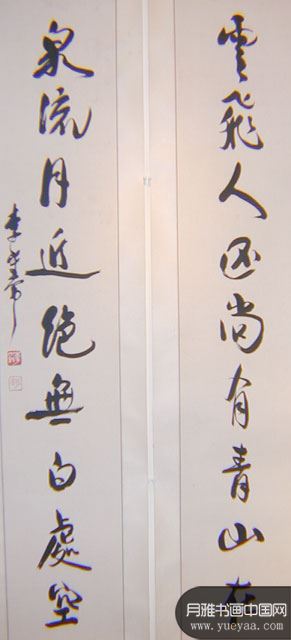 雲飛人尚有青山在
泉流月近絕無白處空
李
月雅书画中国网
www.yueyaa.com